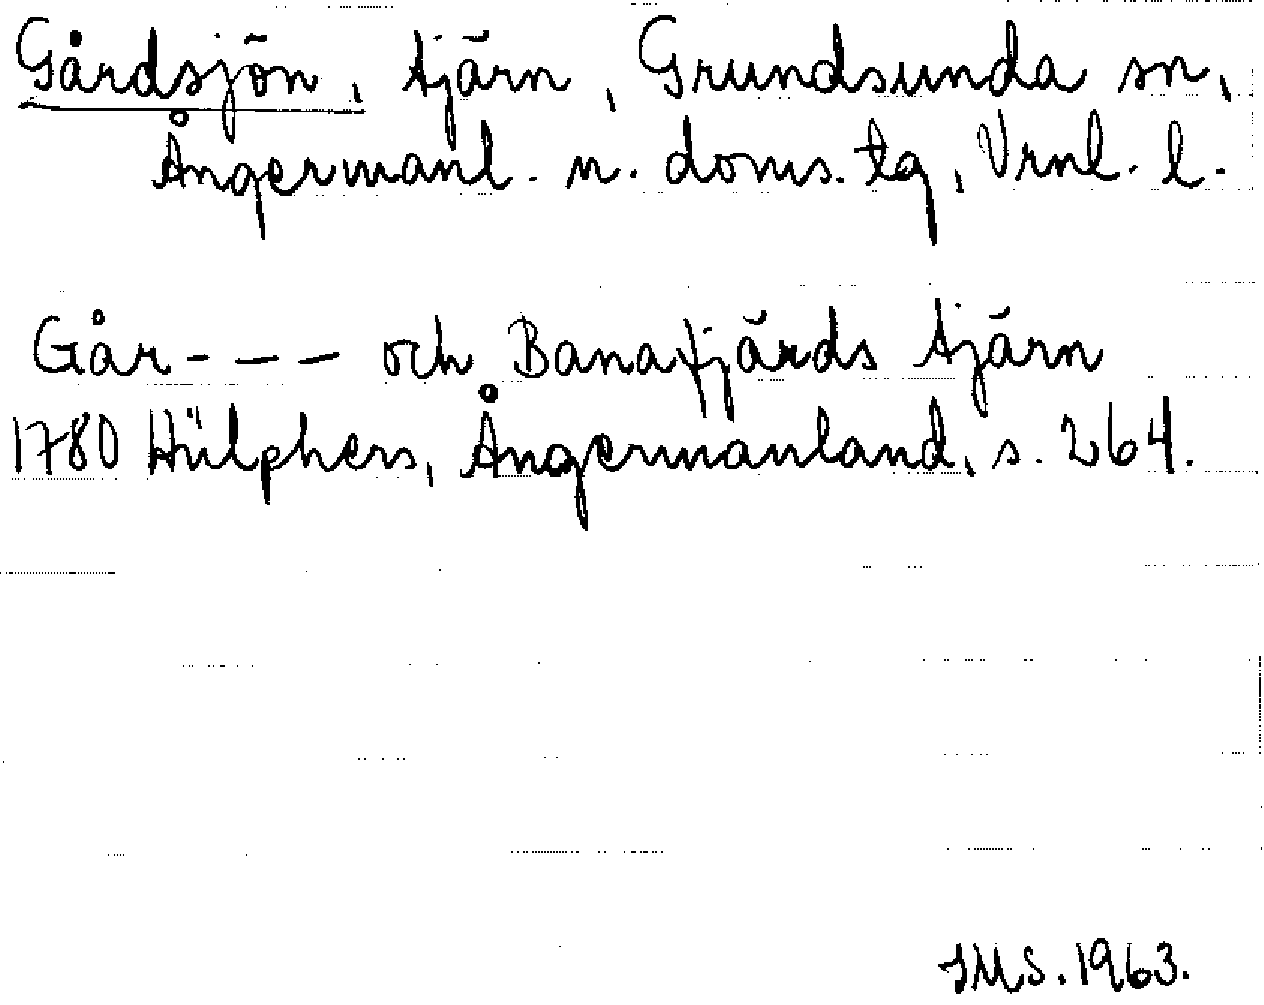 Gårdsjön, tjärn, Grundsunda sn,
Ångermanl. n. doms. tg, Vrnl. l.
Går--- och Banafjärds tjärn
1780 Hülphers, Ångermanland, s. 264.
JMS. 1963.